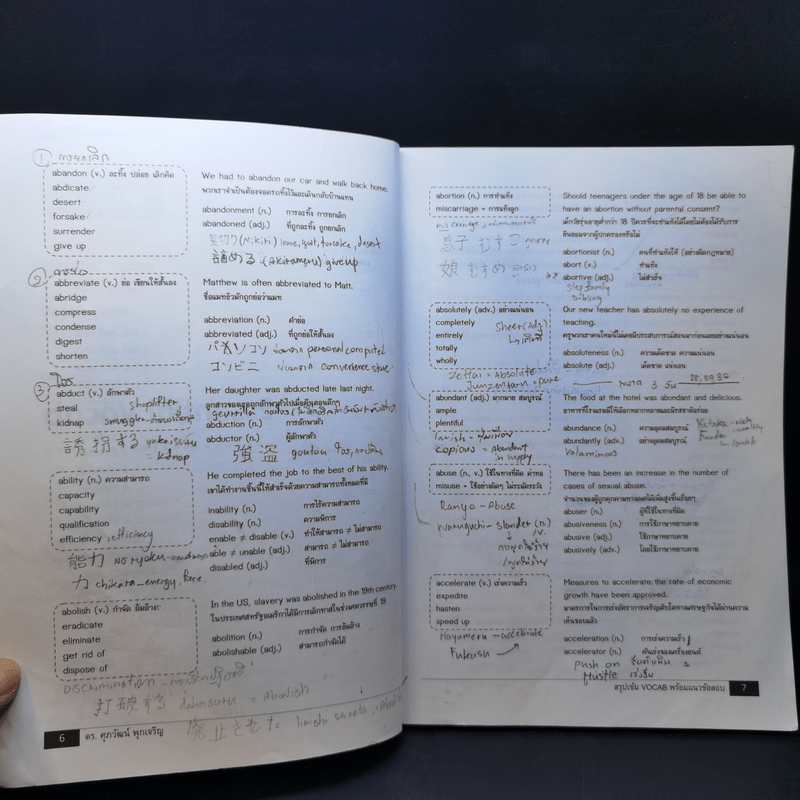 ① การยกเลิก
abandon (v.) ละทิ้ง ปล่อย เลิกคิด
abdicate
desert
forsake
surrender
give up
We had to abandon our car and walk back home.
พวกเราจำเป็นต้องจอดรถทิ้งไว้และเดินกลับบ้านแทน
abandonment (n.) การละทิ้ง การยกเลิก
abandoned (adj.) ที่ถูกละทิ้ง ถูกยกเลิก
見切り (Mikiri) leave, quit, forsake, desert
諦める (Akirameru) give up
② การย่อ
abbreviate (v.) ย่อ เขียนให้สั้นลง
abridge
compress
condense
digest
shorten
Matthew is often abbreviated to Matt.
ชื่อแมทธิวมักถูกย่อว่าแมท
abbreviation (n.) คำย่อ
abbreviated (adj.) ที่ถูกย่อให้สั้นลง
パソコン ย่อมาจาก personal computer
コンビニ ย่อมาจาก convenience store
③ โจร
abduct (v.) ลักพาตัว
steal shoplifter
kidnap smuggler
誘拐する yukaisuru
= kidnap
Her daughter was abducted late last night.
ลูกสาวของเธอถูกลักพาตัวไปเมื่อคืนตอนดึกๆ
guerrilla
abduction (n.) การลักพาตัว
abductor (n.) ผู้ลักพาตัว
強盗 goutou โจร,
ability (n.) ความสามารถ
capacity
capability
qualification
efficiency efficiency
能力 noryoku
力 chikara - energy, force
He completed the job to the best of his ability.
เขาได้ทำงานชิ้นนี้ให้สำเร็จด้วยความสามารถทั้งหมดที่มี
inability (n.) การไร้ความสามารถ
disability (n.) ความพิการ
enable ≠ disable (v.) ทำให้สามารถ ≠ ไม่สามารถ
able ≠ unable (adj.) สามารถ ≠ ไม่สามารถ
disabled (adj.) ที่พิการ
abolish (v.) กำจัด ล้มล้าง
eradicate
eliminate
get rid of
dispose of
In the US, slavery was abolished in the 19th century.
ในประเทศสหรัฐอเมริกาได้มีการเลิกทาสในช่วงศตวรรษที่ 19
abolition (n.) การกำจัด การล้มล้าง
abolishable (adj.) สามารถกำจัดได้
DISCRIMINATION
打破する dahasuru = Abolish
廃止
6 ดร. ศุภวัฒน์ พุกเจริญ
abortion (n.) การทำแท้ง
miscarriage = การแท้งลูก
miscarriage,
息子 むすこ ลูกชาย
娘 むすめ ลูกสาว
Should teenagers under the age of 18 be able to
have an abortion without parental consent?
เด็กวัยรุ่นอายุต่ำกว่า 18 ปีควรที่จะทำแท้งได้โดยไม่ต้องได้รับการ
ยินยอมจากผู้ปกครองหรือไม่
abortionist (n.) คนที่ทำแท้งให้ (อย่างผิดกฎหมาย)
abort (v.) ทำแท้ง
abortive (adj.) ไม่สำเร็จ
step family
sibling
absolutely (adv.) อย่างแน่นอน
completely
entirely
totally
wholly
Sheer (Adj.)
Zettai = Absolute
Junzentaru = pure
Our new teacher has absolutely no experience of
teaching.
ครูพวกเราคนใหม่นี้ไม่เคยมีประสบการณ์สอนมาก่อนเลยอย่างแน่นอน
absoluteness (n.) ความเด็ดขาด ความแน่นอน
absolute (adj.) เด็ดขาด แน่นอน
abundant (adj.) มากมาย สมบูรณ์
ample
plentiful
lavish - ฟุ่มเฟือย
copious = Abundant
in supply
The food at the hotel was abundant and delicious.
อาหารที่โรงแรมมีให้เลือกหลากหลายและมีรสชาติอร่อย
abundance (n.) ความอุดมสมบูรณ์
abundantly (adv.) อย่างอุดมสมบูรณ์
Voluminous
abuse (n, v.) ใช้ในทางที่ผิด ด่าทอ
misuse = ใช้อย่างผิดๆ ไม่ระมัดระวัง
Ranyo - Abuse
Waruguchi - slander (n.)
/v.
There has been an increase in the number of
cases of sexual abuse.
จำนวนของผู้ถูกคุกคามทางเพศได้เพิ่มสูงขึ้นเรื่อยๆ
abuser (n.) ผู้ที่ใช้ในทางที่ผิด
abusiveness (n.) การใช้ภาษาหยาบคาย
abusive (adj.) ใช้ภาษาหยาบคาย
abusively (adv.) โดยใช้ภาษาหยาบคาย
accelerate (v.) เร่งความเร็ว
expedite
hasten
speed up
Hayameru - accelerate
Measures to accelerate the rate of economic
growth have been approved.
มาตรการในการเร่งอัตราการเจริญเติบโตทางเศรษฐกิจได้ผ่านความ
เห็นชอบแล้ว
acceleration (n.) การเร่งความเร็ว
accelerator (n.) คันเร่งของเครื่องยนต์
push on
Hustle เร่งรีบ
สรุปเข้ม VOCAB พร้อมแนวข้อสอบ 7